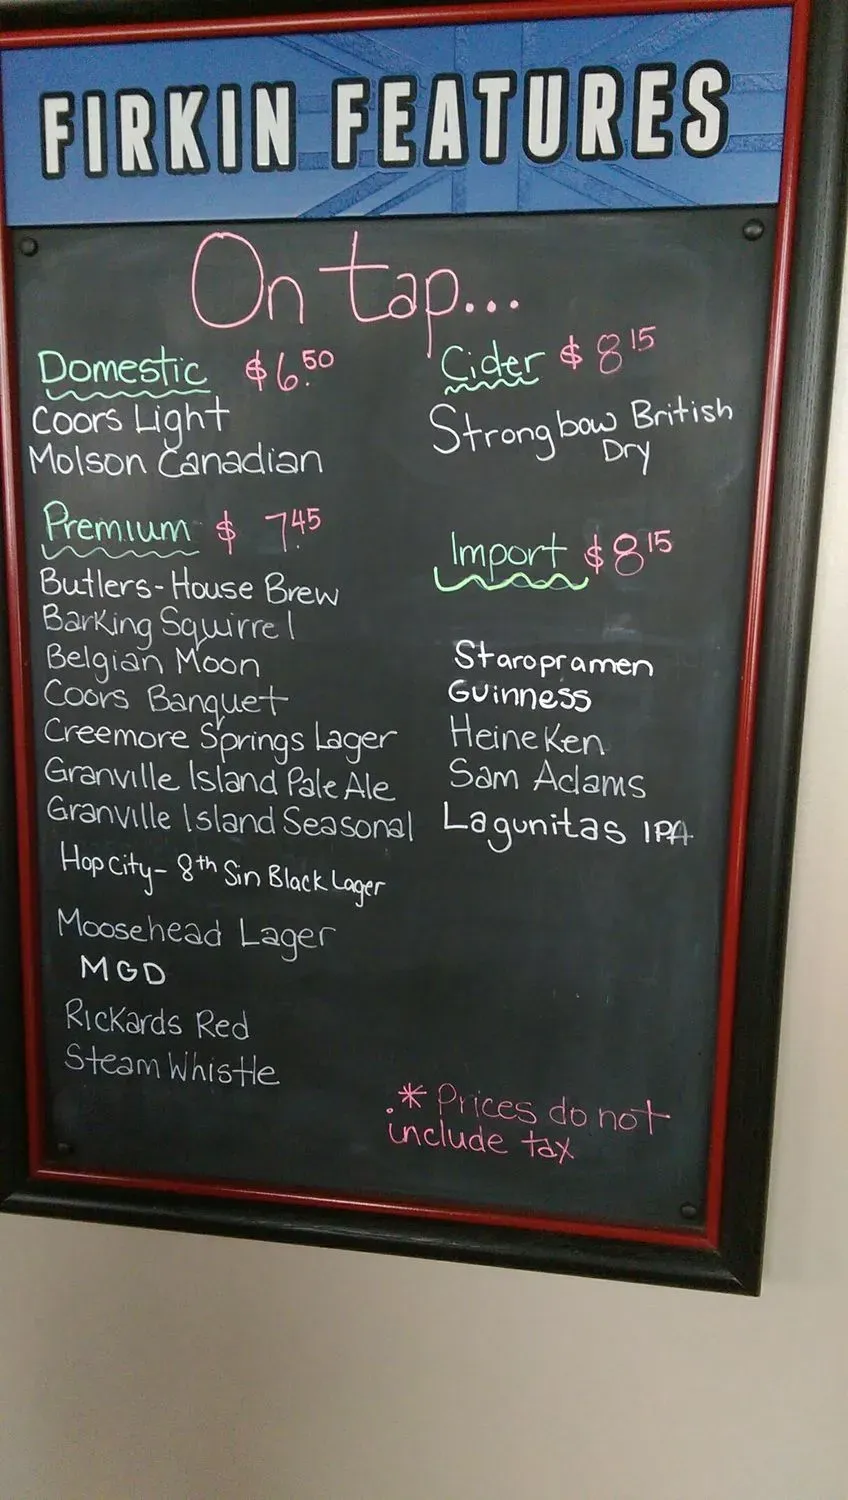 FIRKIN FEATURES
On tap...
Domestic $6.50
Coors Light
Molson Canadian
Premium $7.45
Butlers-House Brew
Barking Squirrel
Belgian Moon
Coors Banquet
Creemore Springs Lager
Granville Island Pale Ale
Granville Island Seasonal
Hop City- 8th Sin Black Lager
Moosehead Lager
MGD
Rickards Red
Steam Whistle
Cider $8 15
Strongbow British
Dry
Import $8 15
Staropramen
Guinness
Heineken
Sam Adams
Lagunitas IPA
* Prices do not
include tax